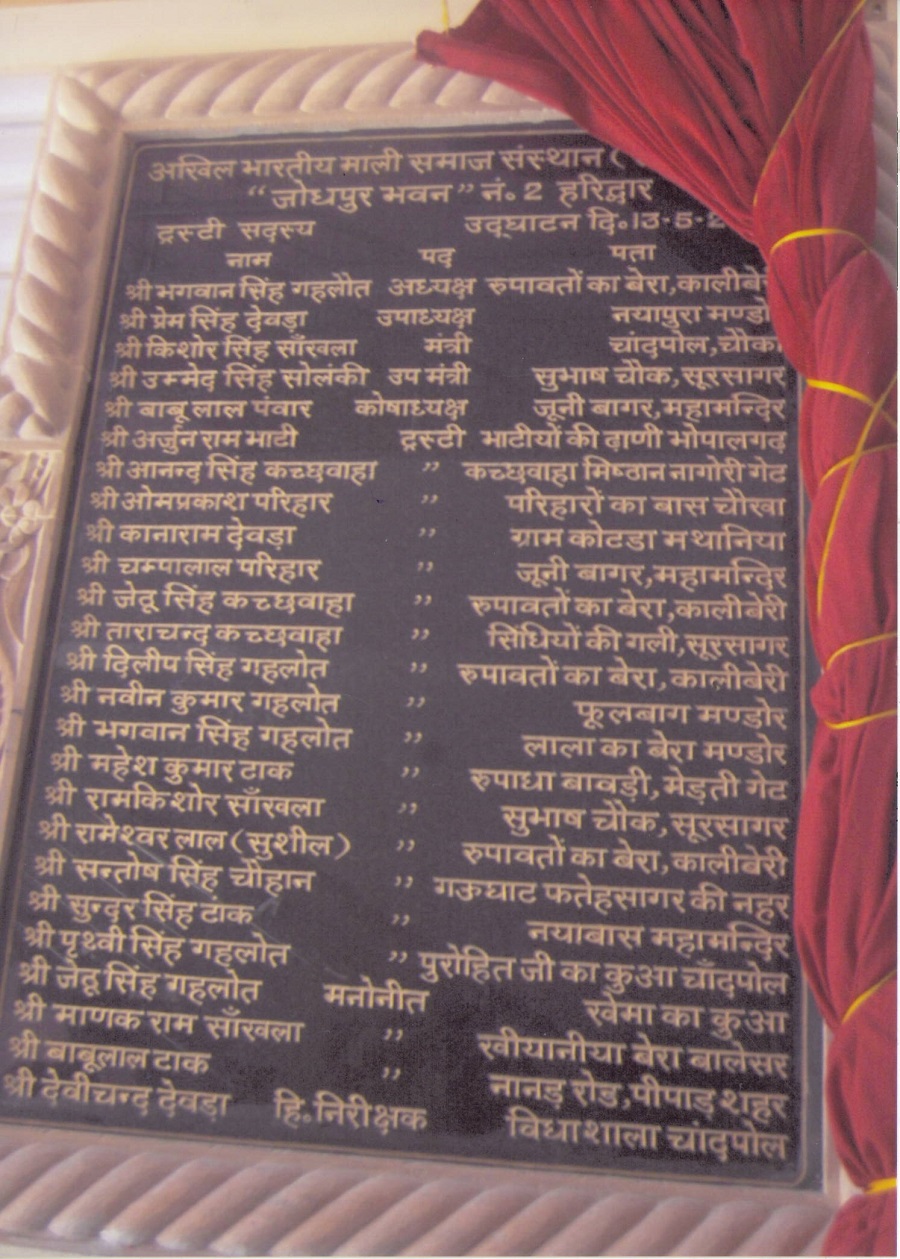 अखिल भारतीय माली समाज संस्थान (
“जोधपुर भवन” नं॰ 2 हरिद्वार
उद्घाटन दि॰ 13-5-
ट्रस्टी सदस्य
नाम पद पता
श्री भगवान सिंह गहलौत अध्यक्ष रुपावतों का बेरा,कालीबे
श्री प्रेम सिंह देवड़ा उपाध्यक्ष नयापुरा मण्डो
श्री किशोर सिंह साँखला मंत्री चांदपोल,चौका
श्री उम्मेद सिंह सोलंकी उप मंत्री सुभाष चौक,सूरसागर
श्री बाबू लाल पंवार कोषाध्यक्ष जूनी बागर,महामन्दिर
श्री अर्जुन राम भाटी ट्रस्टी भाटीयों की ढ़ाणी भोपालगढ
श्री आनन्द सिंह कच्छवाहा ” कच्छवाहा मिष्ठान नागोरी गेट
श्री ओमप्रकाश परिहार ” परिहारों का बास चौखा
श्री कानाराम देवड़ा ” ग्राम कोटडा मथानिया
श्री चम्पालाल परिहार ” जूनी बागर,महामन्दिर
श्री जेठू सिंह कच्छवाहा ” रुपावतों का बेरा,कालीबेरी
श्री ताराचन्द कच्छवाहा ” सिंधियों की गली,सूरसागर
श्री दिलीप सिंह गहलोत ” रुपावतों का बेरा,कालीबेरी
श्री नवीन कुमार गहलोत ” फूलबाग मण्डोर
श्री भगवान सिंह गहलोत ” लाला का बेरा मण्डोर
श्री महेश कुमार टाक ” रुपाधा बावड़ी,मेड़ती गेट
श्री रामकिशोर साँखला ” सुभाष चौक,सूरसागर
श्री रामेश्वर लाल (सुशील) ” रुपावतों का बेरा,कालीबेरी
श्री सन्तोष सिंह चौहान ” गऊघाट फतेहसागर की नहर
श्री सुन्दर सिंह टांक ” नयाबास महामन्दिर
श्री पृथ्वी सिंह गहलोत ” पुरोहित जी का कुआ चाँदपोल
श्री जेठू सिंह गहलोत मनोनीत खेमा का कुआ
श्री माणक राम साँखला ” खीयानीया बेरा बालेसर
श्री बाबूलाल टाक ” नानड़ रोड,पीपाड़ शहर
श्री देवीचन्द देवड़ा हि.निरीक्षक विधाशाला चांदपोल